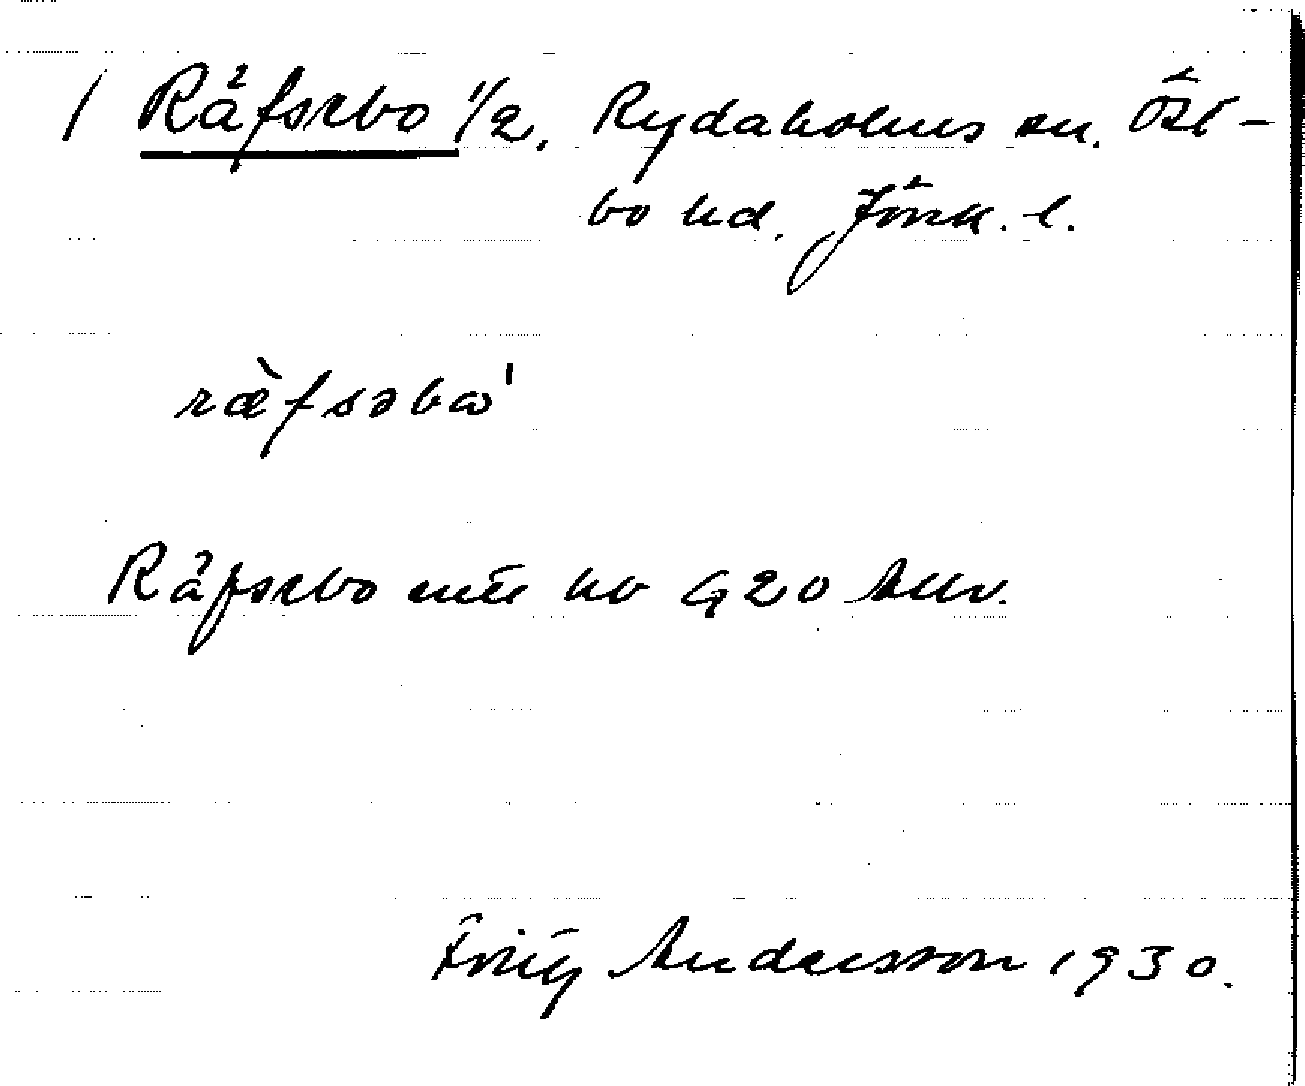 / Räfsebo 1/2, Rydaholms sn. Öst-
bo hd. Jönk. l.
ræ̀fsəbω'
Räfsebo enl hb 920 Allv.
Fritz Andersson 1930.